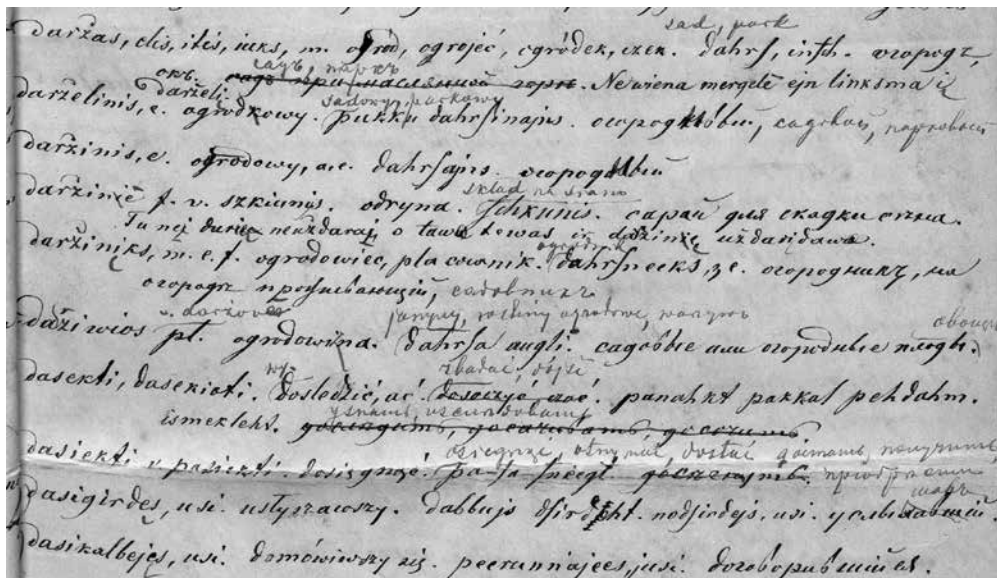 sad, park
daržas, elis, itis, iuks, m. ogród, ogrojec, ogródek, czek. dahrſ, inſch. огородъ,
садъ, паркъ
окъ. садъ при масляной горѣ. Ne wiena mergelė ejn linksma iż
darželi.
sadowy, parkowy
darželinis, e. ogródkowy. pukku dahrſinajis. огородный, садовый, парковый
daržinis, e. ogrodowy, a, e. dahrſajis. огородный
skład na siano
daržinię f. v. szkiunis. odryna. ſchkunis. сарай для складки сена.
Tu nej duriu neuždaraj o tawa tewas ir daržinię uždarįdawa.
ogrodnik
daržiniks, m. e. f. ogrodowiec, placownik. dahrſneeks, ze. огородникъ, на
огородѣ проживающій, садовникъ
v. daržovės
jarzyny, rośliny ogrodowe, warzywo
овощи
daržiwios pl. ogrodowizna. dahrſa augli. садовые или огородные плоды.
wy- zbadać, dojść
dasekti, dasekioti. dosledzić, ać. doszczyć, czać. panahkt pakkal pehdahm.
узнать,
ismekleht. доследить, досачивать, досочить.
osięgnąć, otrzymać, dostać достать, получить,
dasiekti v. pasiekti. dosięgnąć. paſaſneegt. досягнуть. приобрести
dasigirdęs, usi. usłyszawszy. dabbujs dſirdeht. nodſirdejs, usi. услыхавшій.
dasikalbejęs, usi. domówiwszy się. peerunnajees, usi. договорившійся.